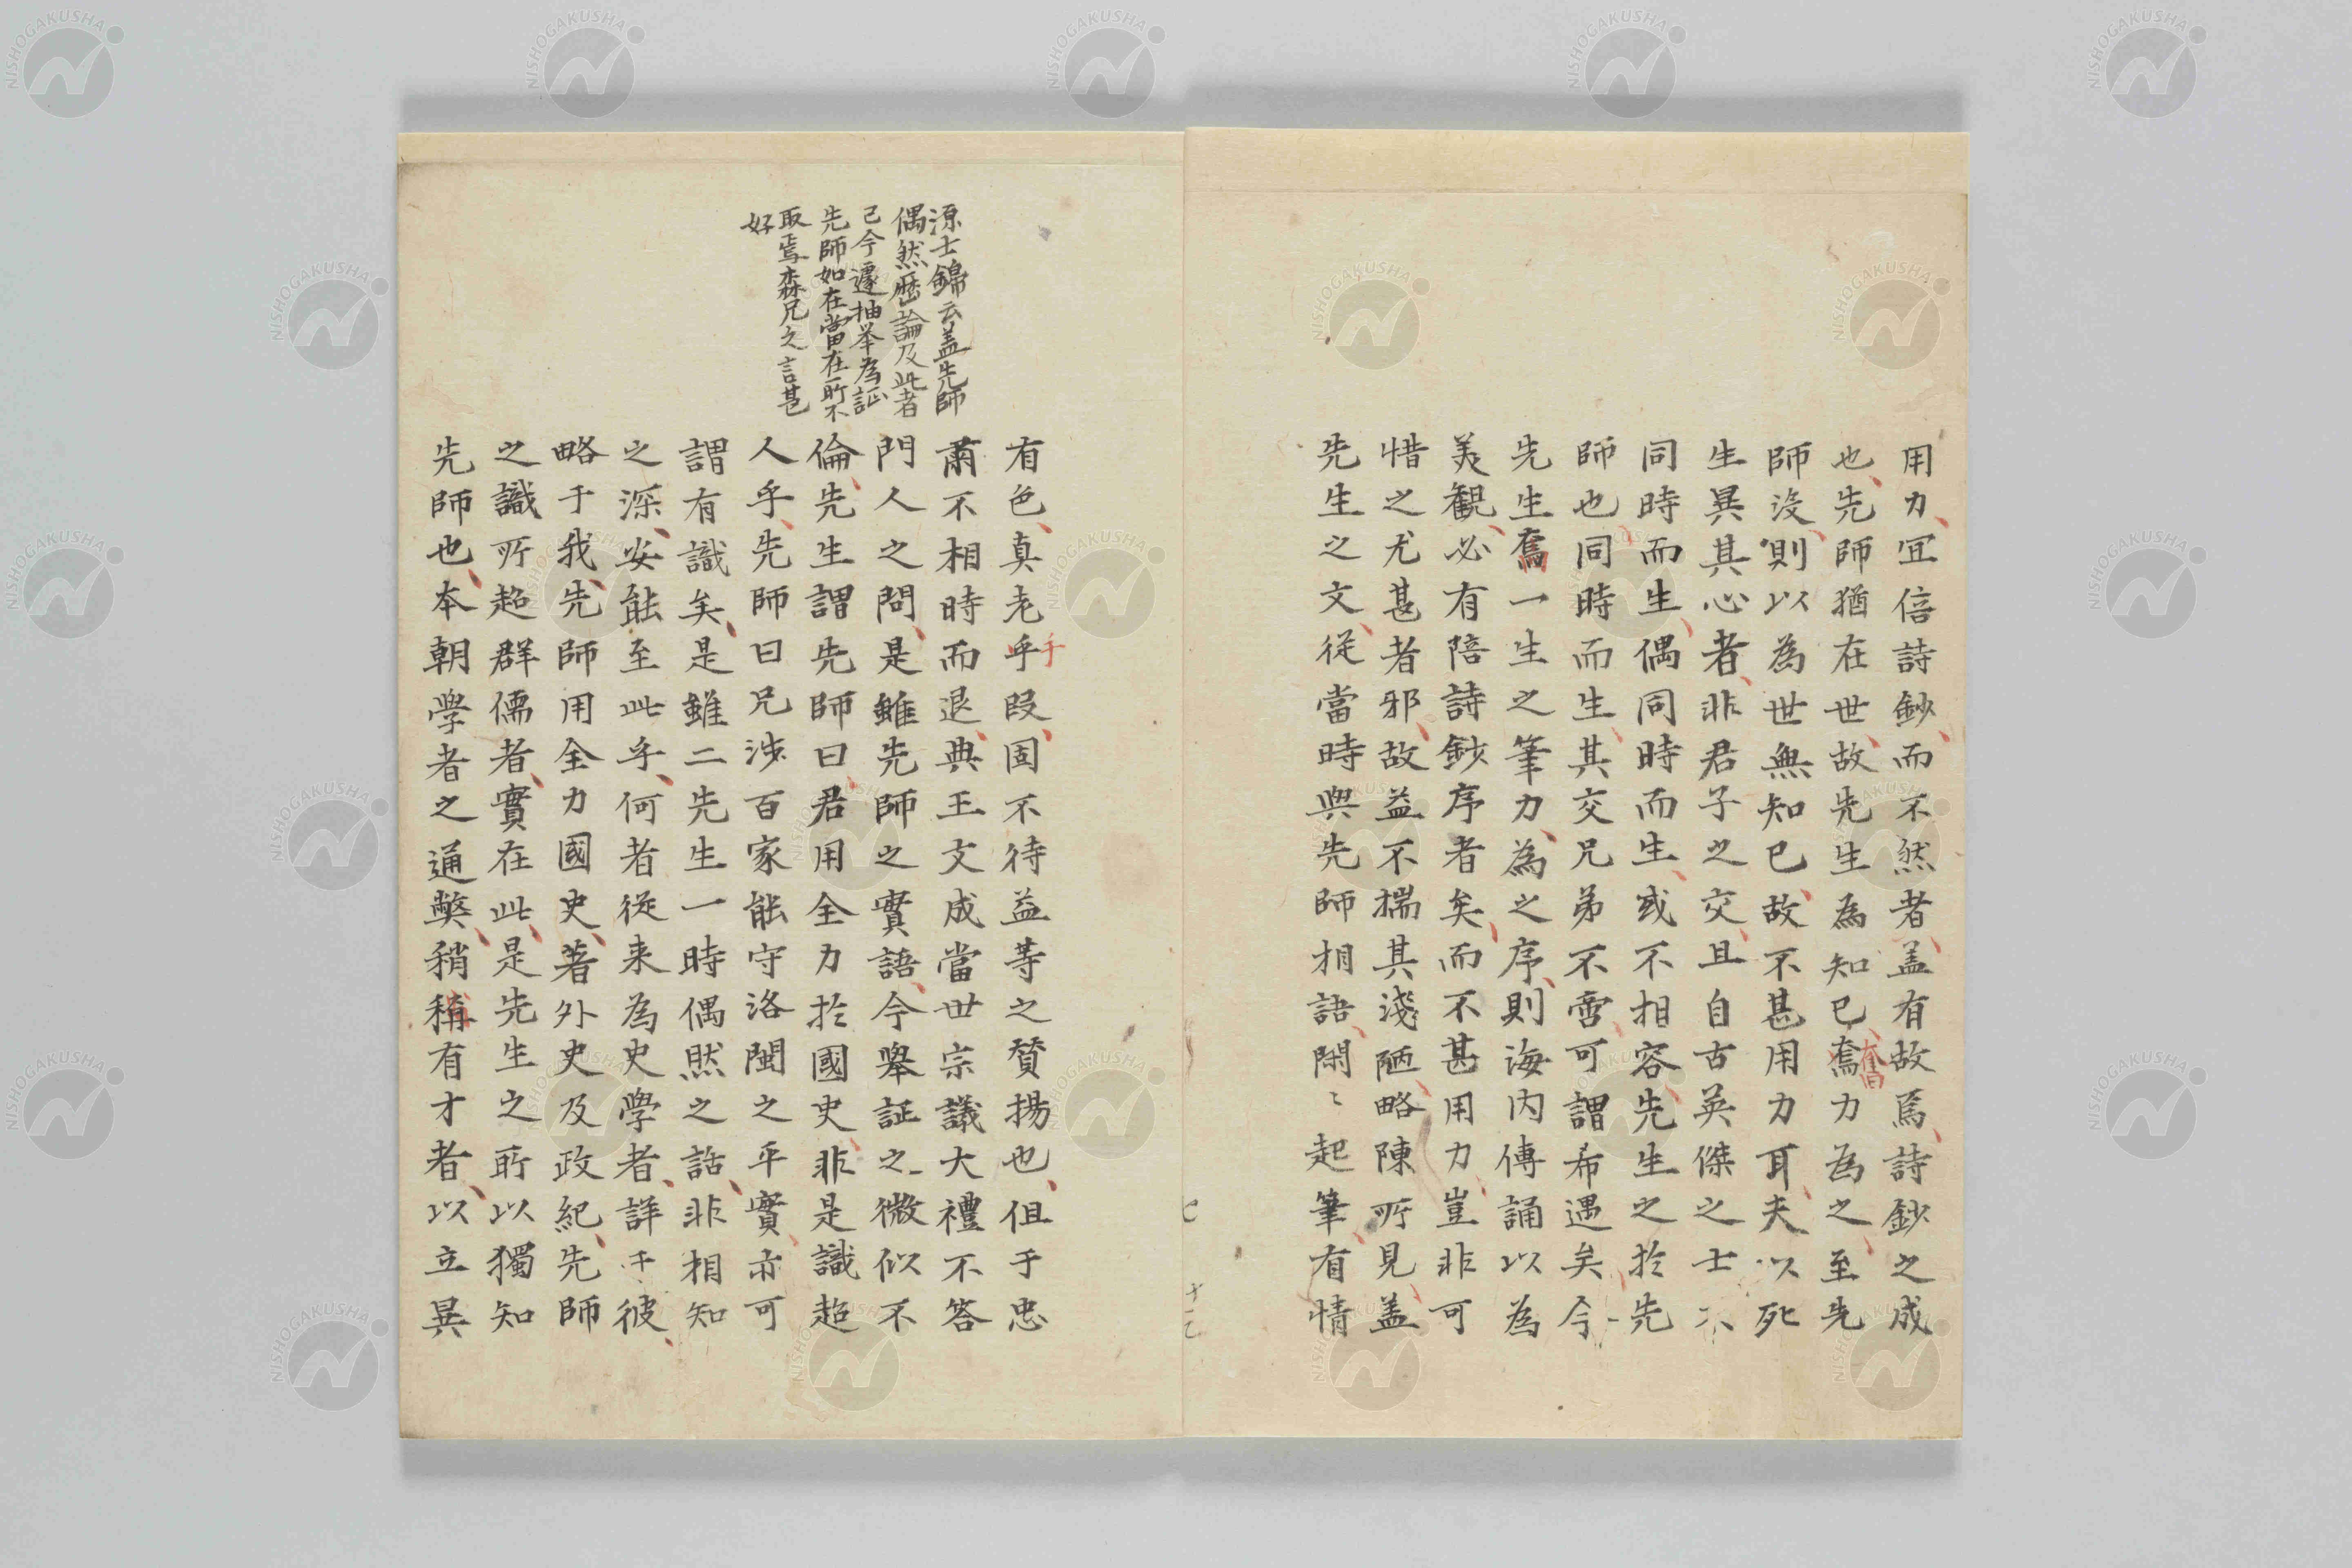 用力宜倍詩鈔而不然者盖有故焉詩鈔之成
也先師猶在世故先生為知己奮力為之至先
師沒則以為世無知己故不甚用力耳夫以死
生異其心者非君子之交且自古英傑之士不
同時而生偶同時而生或不相容先生之於先
師也同時而生其交兄弟不啻可謂希遇矣今
先生奮一生之筆力為之序則海内傳誦以為
美觀必有陪詩鈔序者矣而不甚用力豈非可
惜之尤甚者邪故益不揣其淺陋略陳所見盖
先生之文從當時與先師相語閑〻起筆有情
源士錦云盖先師
偶然歷論及此者
己今遽抽举為証
先師如在當在所不
取焉森兄之言甚
好
有色真老乎段固不待益等之賛揚也但于忠
手
肅不相時而退典王文成當世宗議大禮不答
門人之問是雖先師之實語今舉証之微似不
倫先生謂先師曰君用全力於國史非是識超
人乎先師曰兄涉百家能守洛閩之平實亦可
謂有識矣是雖二先生一時偶然之話非相知
之深安能至此乎何者從来為史學者詳于彼
略于我先師用全力國史著外史及政紀先師
之識所超群儒者實在此是先生之所以獨知
先師也本朝学者之通弊稍稱有才者以立異